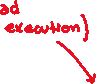 ad
execution)